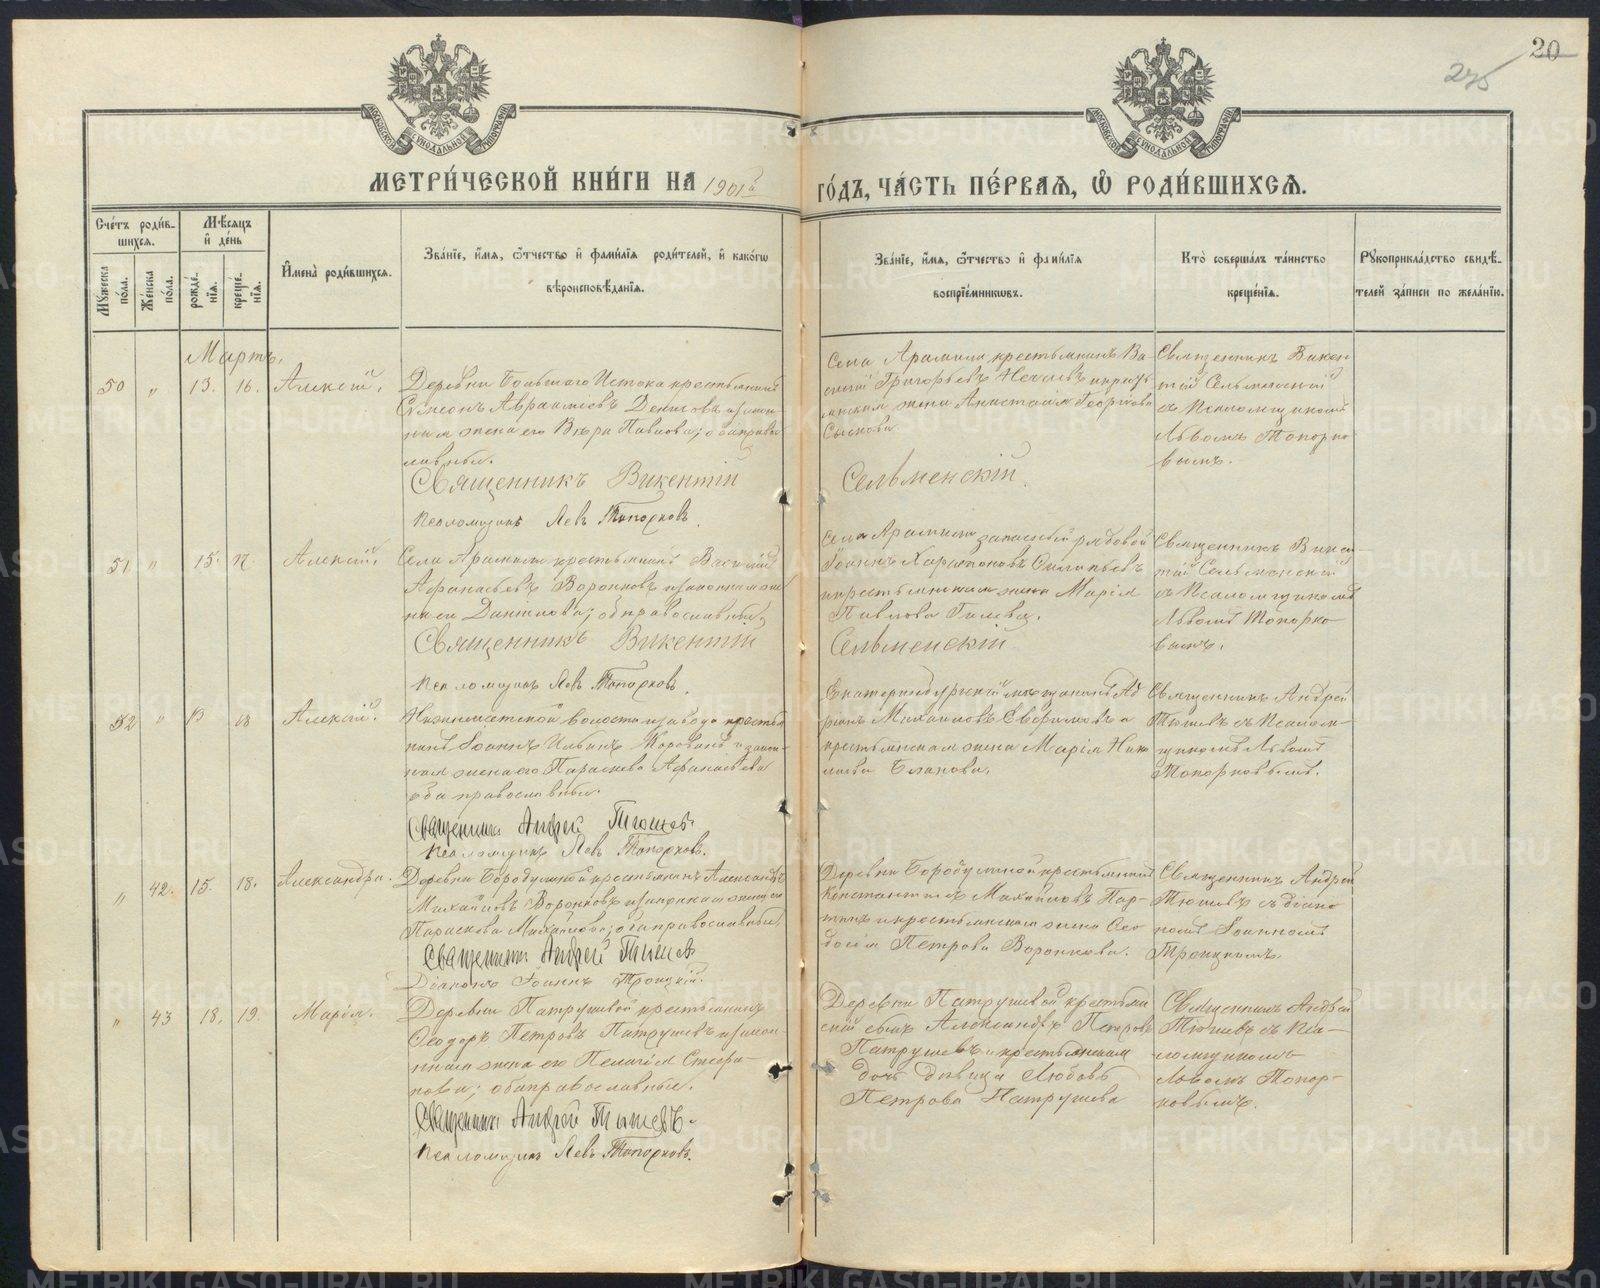 20
275
МЕТРИ́ЧЕСКОЙ КНИ́ГИ НА 1901й ГО́ДЪ, ЧА́СТЬ ПЕ́РВАЯ, Ѽ РОДИ́ВШИХСЯ.
Сче́тъ роди́в-
шихся.
Мѣ́сяцъ
и҆ де́нь
Мꙋ́жеска
по́ла.
Же́нска
по́ла.
рожде́-
нїѧ.
креще́-
нїѧ.
И҆мена̀ роди́вшихся.
Зва́нїе, и҆́мѧ, ѻ҆́тчество и҆ фами́лїѧ роди́телей, и҆ како́гѡ
вѣроисповѣ́данїѧ.
Зва́нїе, и҆́мѧ, ѻ҆́тчество и҆ фами́лїѧ
воспрїе́мникѡвъ.
Кто̀ соверша́лъ та́инство
креще́нїѧ.
Рꙋкоприкла́дство свидѣ́-
телей за́писи по жела́нїю.
Мартъ.
50 " 13. 16. Алексій.
Деревни Большаго Истока крестьянинъ
Симеонъ Авраамовъ Денисовъ и закон-
ная жена его Вѣра Павлова; оба право-
славные.
Священникъ Викентій
Псаломщикъ Левъ Топорковъ.
Села Арамили крестьянинъ Ва-
силій Григорьевъ и кресть-
янская жена Анастасія Георгіева
Священникъ Викен-
тій Сельменскій
съ Псаломщикомъ
Львомъ Топорко-
вымъ.
Сельменскій.
51 " 15. 17. Алексій.
Села Арамили крестьянинъ Василій
Афанасьевъ Воронковъ и законная же-
на его Данилова; оба православные.
Священникъ Викентій
Псаломщикъ Левъ Топорковъ.
Села Арамили запасный рядовой
Іоаннъ Харитоновъ
и крестьянская жена Марія
Павлова Гилева.
Сельменскій.
Священникъ Викен-
тій Сельменскій
съ Псаломщикомъ
Львомъ Топорко-
вымъ.
52 " 17 18 Алексій.
волости завода кресть-
нинъ Іоаннъ Ильинъ и закон-
ная жена его Параскева Афанасьева
оба православные.
Священникъ Андрей Тюшевъ.
Псаломщикъ Левъ Топорковъ.
Екатеринбургскій мѣщанинъ Ад-
ріанъ Михаиловъ и
крестьянская жена Марія Ник-
Священникъ Андрей
Тюшевъ съ Псалом-
щикомъ Львомъ
Топорковымъ.
" 42. 15. 18. Александра.
Деревни Бородулиной крестьянинъ Александръ
Михайловъ Воронковъ и законная жена его
Параскева Михайлова; оба православные.
Священникъ Андрей Тюшевъ
Діаконъ Іоаннъ Троицкій.
Деревни Бородулиной крестьянинъ
Константинъ Михайловъ
и крестьянская жена Ѳео-
досія Петрова Воронкова.
Священникъ Андрей
Тюшевъ съ діако-
номъ Іоанномъ
Троицкимъ.
" 43 18. 19. Марія.
Деревни Патрушевой крестьянинъ
Ѳеодоръ Петровъ Патрушевъ и закон-
ная жена его Пелагія Стефа-
нова; оба православные.
Священникъ Андрей Тюшевъ.
Псаломщикъ Левъ Топорковъ.
Деревни Патрушевой крестьян-
скій сынъ Александръ Петровъ
Патрушевъ и крестьянская
дочь дѣвица Любовь
Петрова Патрушева
Священникъ Андрей
Тюшевъ съ Пса-
ломщикомъ
Львомъ Топор-
ковымъ.